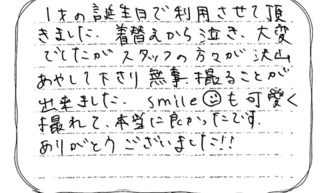 1才の誕生日で利用させて頂
きました。着替えから泣き、大変
でしたがスタッフの方々が沢山
あやして下さり無事撮ることが
出来ました。smile☺も可愛く
撮れて、本当に良かったです。
ありがとうございました!!